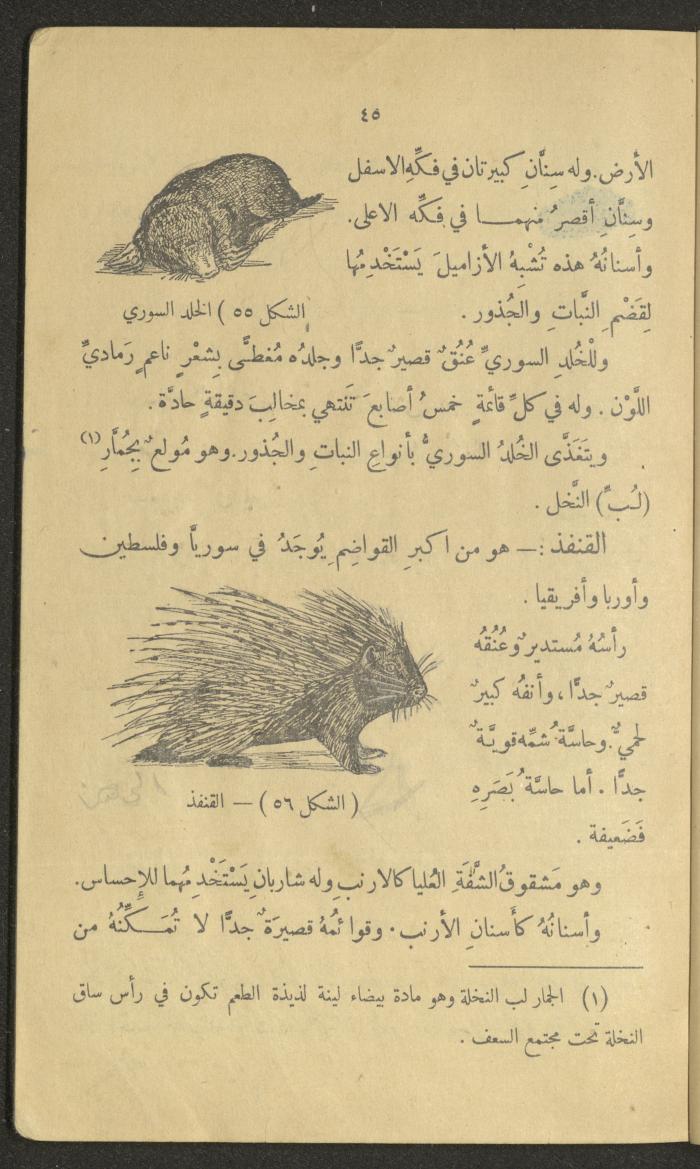 ٤٥
الأرض. وله سِنَّانِ كبيرتان في فكِّهِ الاسفل
وسِنَّانِ أقصرُ منهمـــا في فكِّه الاعلى.
وأسنانُهُ هذه تُشْبِهُ الأزاميلَ يَسْتَخْدِمُها
لِقَضْمِ النَّباتِ والجُذور .
الشكل ٥٥ ) الخلد السوري
وللْخُلدِ السوريِّ عُنُقٌ قصيرٌ جدًّا وجلدُه مُغطىًّ بِشعْرٍ ناعمٍ رَماديِّ
اللَّوْن . وله في كلِّ قائمةٍ خمسُ أصابعَ تَنتهي بمخالِبَ دقيقةٍ حادَّة .
ويتَغَذَّى الخُلدُ السوريُّ بأنواعِ النباتِ والجُذور. وهو مُولعٌ بِجُمَّارِ (١)
(لُبِّ) النَّخل .
القنفذ : — هو من اكبرِ القواضِمِ يُوجَدُ في سوريَّا وفلسطين
وأوربا وأفريقيا .
رأسُهُ مُستديرٌ وعُنُقُه
قصيرٌ جدًّا ، وأنفُه كبيرٌ
لحميٌّ. وحاسَّةُ شمِّه قويَّةٌ
جدًّا . أما حاسَّةُ بَصَرِهِ
فَضَعيفة .
( الشكل ٥٦ ) — القنفذ
وهو مَشقوقُ الشَّفَةِ العُليا كالارنبِ وله شاربانِ يَسْتَخْدِمُهما للإحساس.
وأسنانُهُ كأَسنانِ الأرنب . وقوائمُهُ قصيرَةٌ جدًّا لا تُمَــكِّنُهُ من
(١) الجمار لب النخلة وهو مادة بيضاء لينة لذيذة الطعم تكون في رأس ساق
النخلة تحت مجتمع السعف .